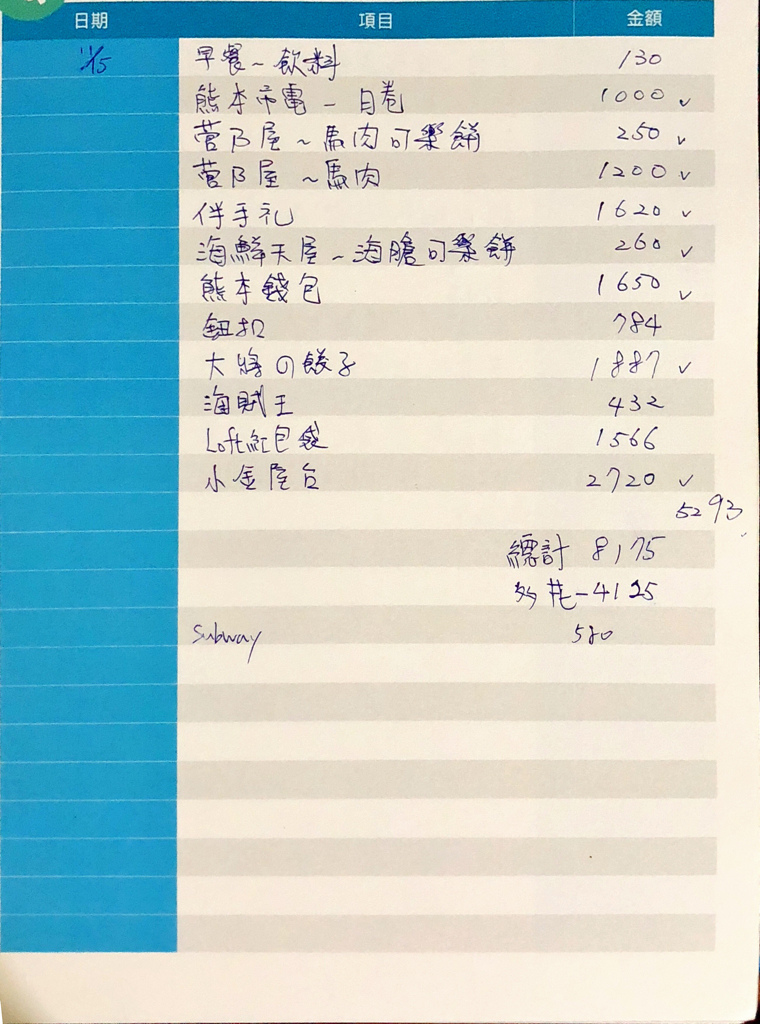 日期 項目 金額
11/15 早餐~飲料 130
熊本市電-自卷 1000 ✓
菅乃屋~馬肉可樂餅 250 ✓
菅乃屋~馬肉 1200 ✓
伴手礼 1620 ✓
海鮮天屋~海膽可樂餅 260 ✓
熊本錢包 1650 ✓
鈕扣 784
大將の餃子 1887 ✓
海賊王 432
Loft紅包袋 1566
小金屋台 2720 ✓
5293
總計 8175
多花-4125
Subway 580